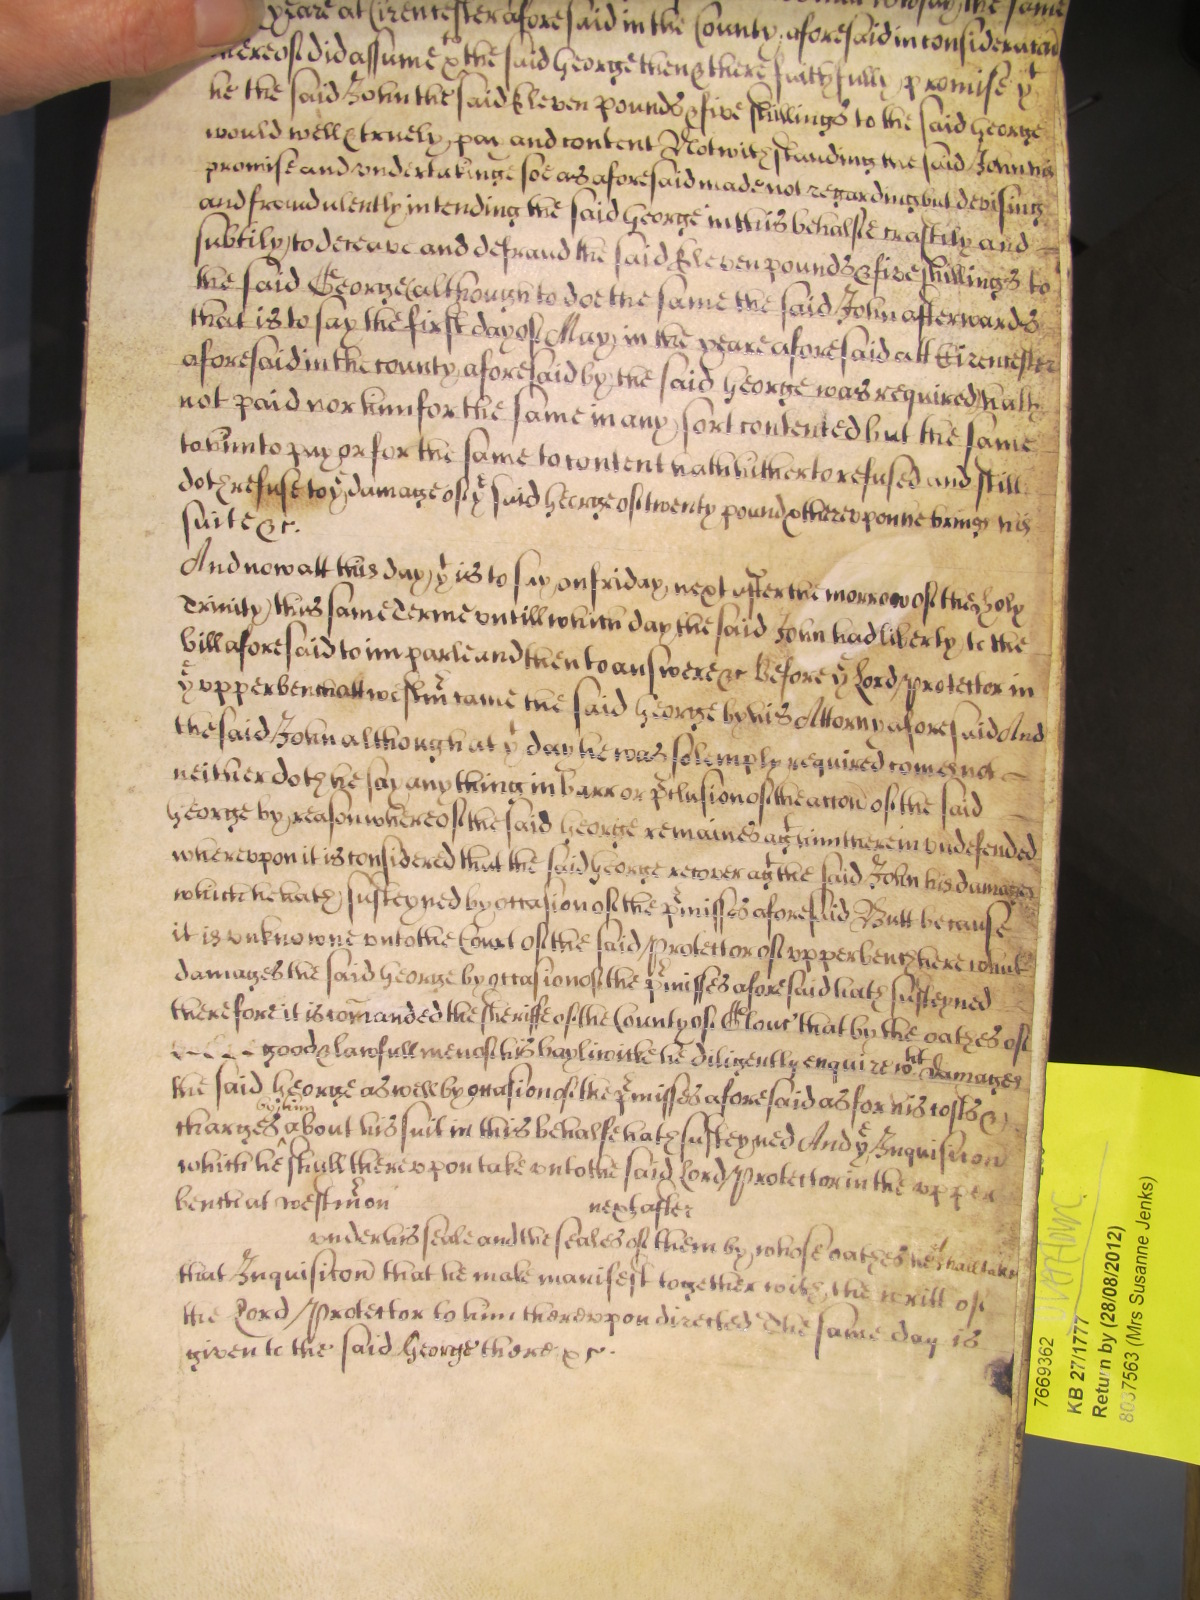 the same
yeare at Cirencester aforesaid in the County aforesaid in consideracon
whereof did assume & to the said George then & there faithfully promise yt
he the said John the said Eleven pounds & five shillings to the said George
would well & truely pay and content Notwithstanding the said John his
promise and undertakinge soe as aforesaid made not regarding but devising
and fraudulently intending the said George in this behalfe craftily and
subtily to deceave and defraud the said Eleven pounds & five shillings to
the said George (although to doe the same the said John afterwards
that is to say the first day of May in the yeare aforesaid att Cirencester
aforesaid in the county aforesaid by the said George was required) hath
not paid nor him for the same in any sort contented but the same
to him to pay or for the same to content hath hitherto refused and still
doth refuse to ye damage of ye said George of twenty pound & thereupon he brings his
suite &c.
And now att this day yt is to say on friday next after the morrow of the holy
Trinity this same Terme untill which day the said John had liberty to the
bill aforesaid to imparle and then to answere &c Before ye Lord Protector in
ye upper bench att Westmr came the said George by his Attorny aforesaid And
the said John although at yt day he was solemply required comes not
neither doth he say any thing in barr or pclusion of the accon of the said
George by reason whereof the said George remaines agt him therein undefended
whereupon it is considered that the said George recover agt the said John his damages
which he hath susteyned by occasion of the pmisses aforesaid Butt because
it is unknowne unto the Court of the said Protector of upper bench here what
damages the said George by occasion of the pmisses aforesaid hath susteyned
therefore it is comanded the sheriffe of the County of Glouc' that by the oathes of
good & lawfull men of his bayliwicke he diligently enquire wht damages
the said George as well by occasion of the pmisses aforesaid as for his costs &
charges by him about his suit in this behalfe hath susteyned And ye Inquisicon
which he shall thereupon take unto the said Lord Protector in the upper
bench at Westmon next after
under his seale and the seales of them by whose oathes he shall take
that Inquisicon that he make manifest together with the writt of
the Lord Protector to him thereupon directed The same day is
given to the said George there &c.
7669362
KB 27/1777
Return by (28/08/2012)
8037563 (Mrs Susanne Jenks)